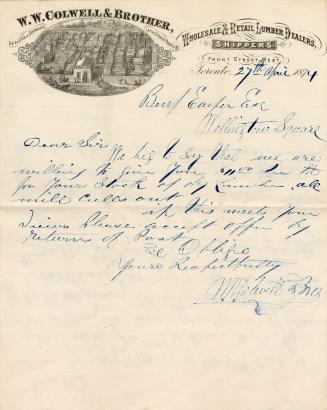 W. W. COLWELL & BROTHER,
WHOLESALE & RETAIL LUMBER DEALERS,
SHIPPERS
FRONT STREET WEST
Toronto, 27th April 1874
Wellington Square
Dear Sir
We beg to say that we are
willing to give you
for your Stock of dry Lumber all
mill culls out
if this meets your
views Please accept offer by
return of Post
& Oblige
Yours Respectfully
W W Colwell & Bro